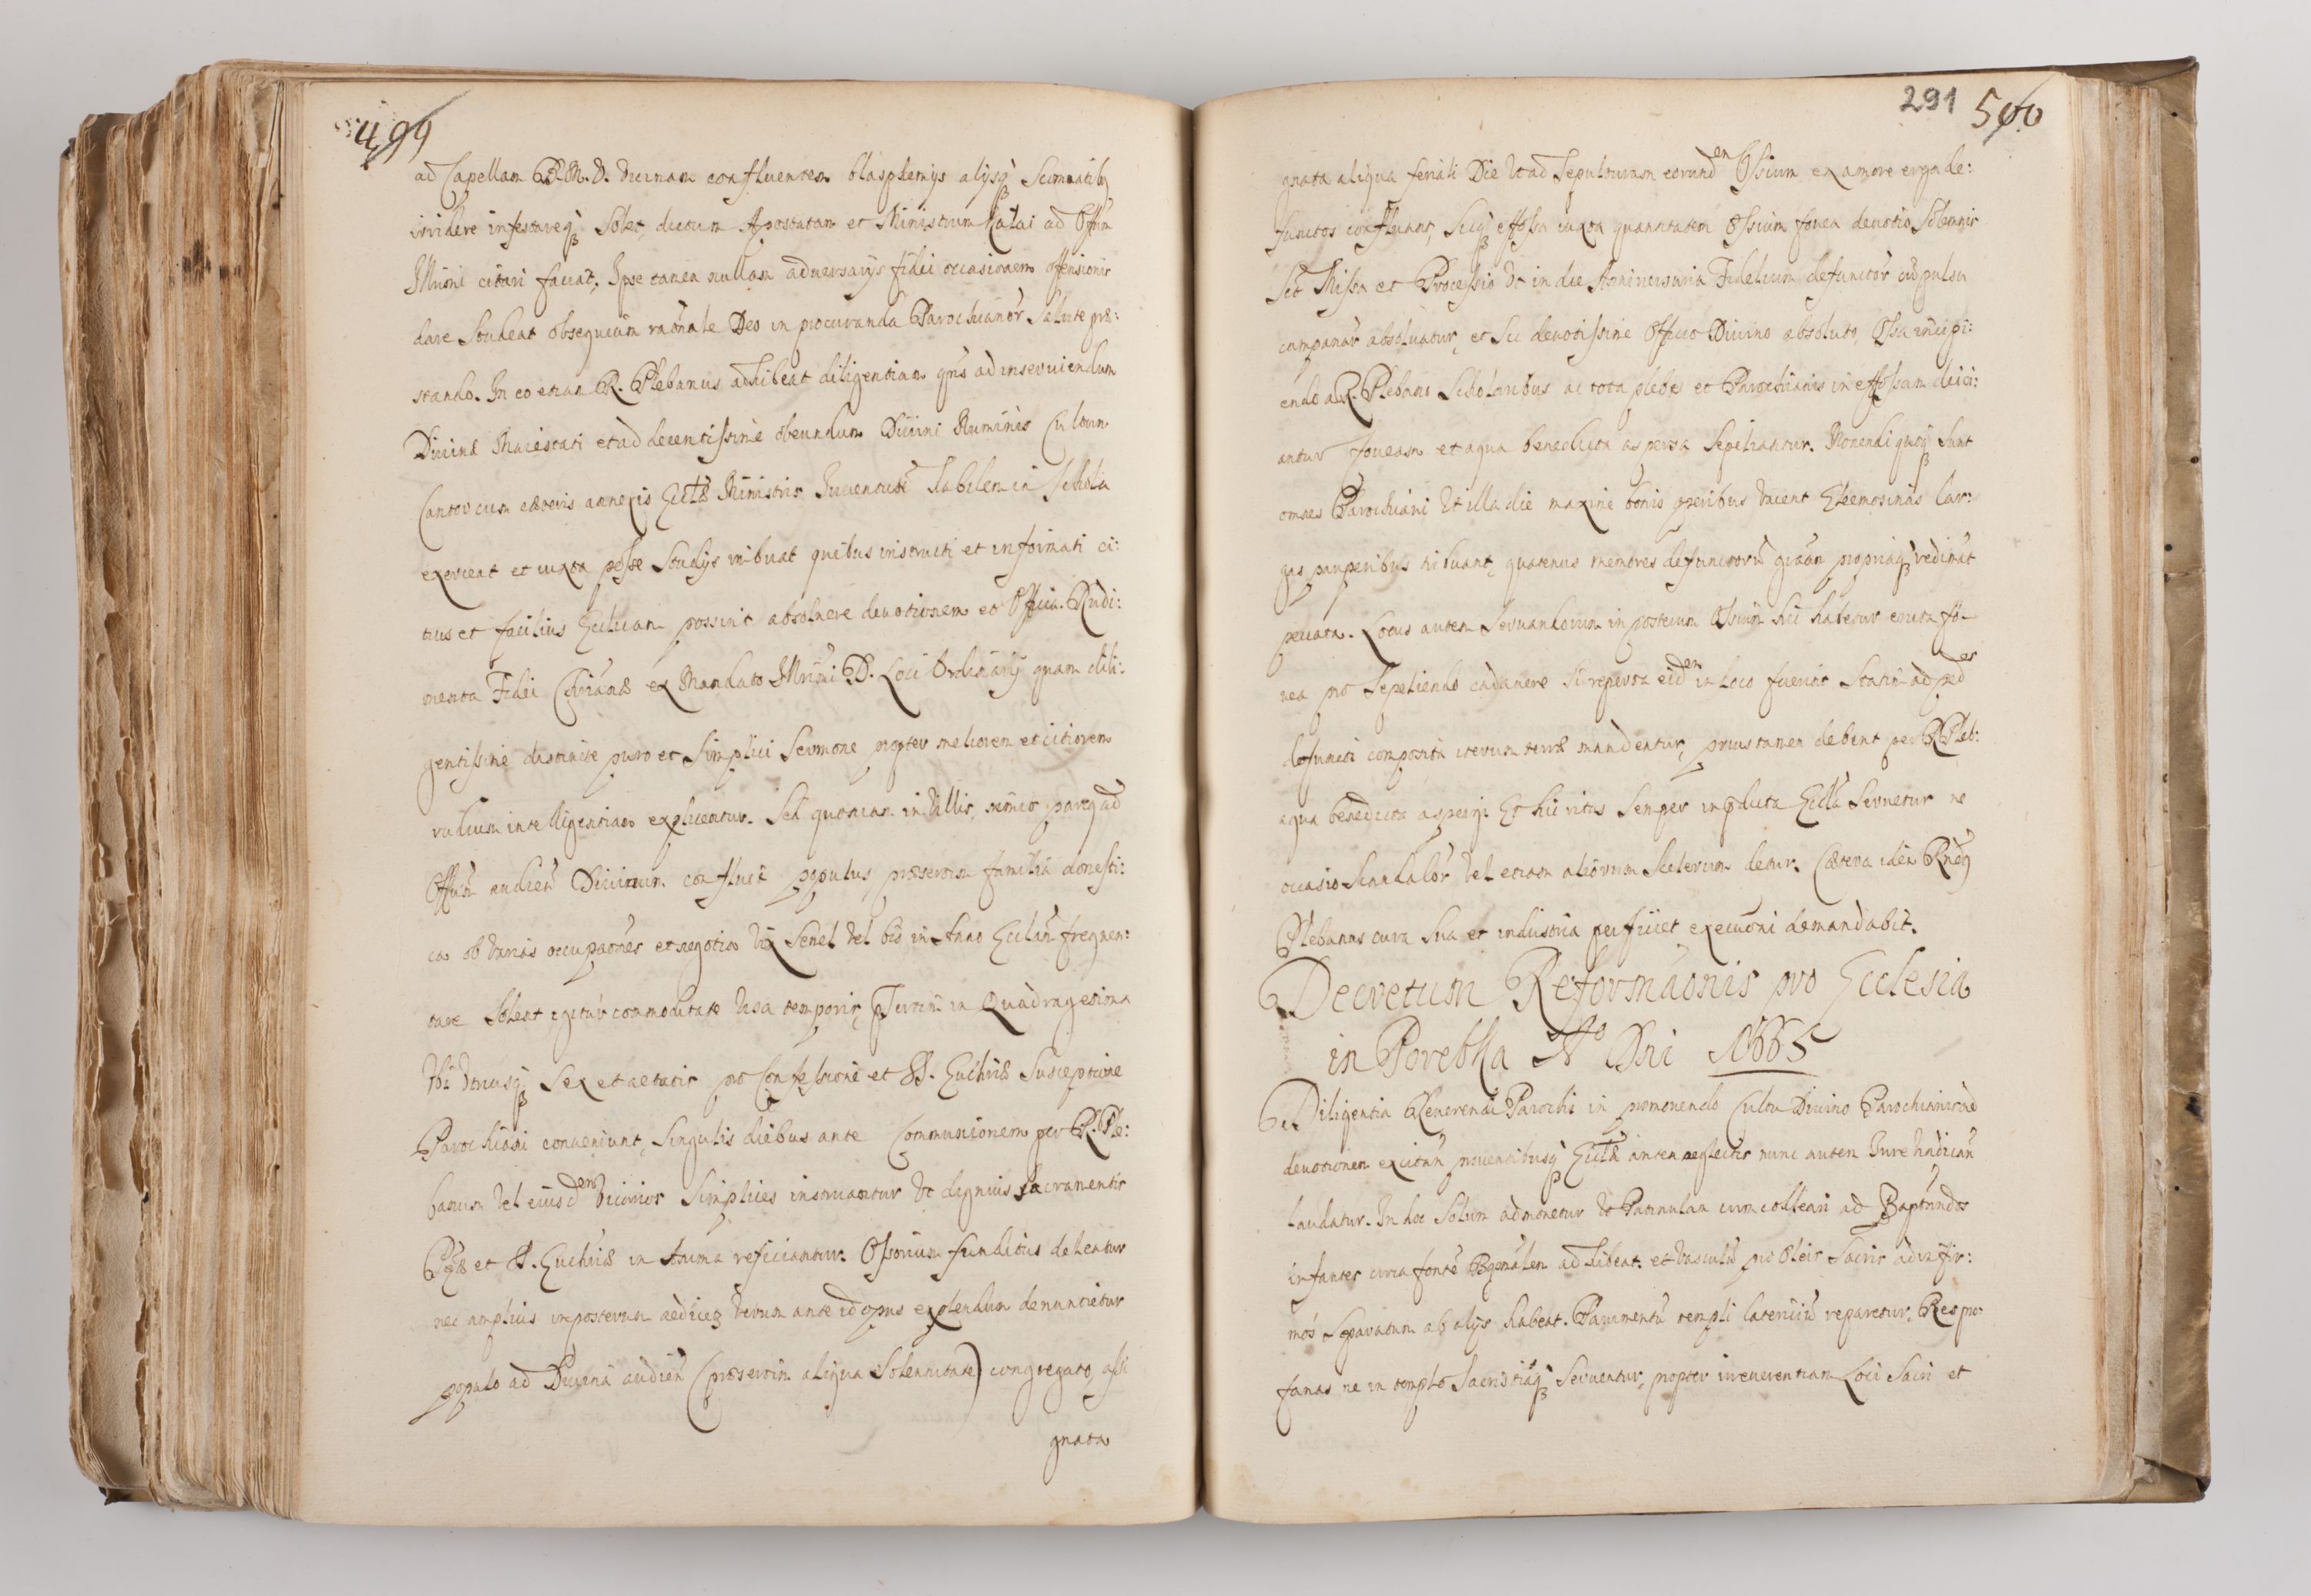 499
ad Capellam B.M.V. vicinam confluentem blasphemys alysq scommatibq
irridere infestareq solet, dictum Apostatam et Ministrum ad Offm
Illmi citari faciat, Ipse tamen nullam adversarys fidei occasionem offensionis
dare studeat obsequium raonale Deo in procuranda Parochianor Salute præ:
stando. In eo etiam R. Plebanus adhibeat diligentiam qns ad inserviendum
Divinæ Maiestati et ad decentissime obeundum Divini Numinis Cultum
Cantor cum cæteris annexis Ecclæ Ministris Juventute habilem in Schola
exerceat et iuxta posse Studys imbuat quibus instructi et informati ci:
tius et facilius Ecclicam possint absolvere devotionem et Officia. Rudi:
menta Fidei Chrianæ ex Mandato Illmi D. Loci Ordinarÿ quam dili:
gentissime distincte puro et simplici Sermone propter meliorem et citiorem
rudium intelligentiam explicentur. Sed quoniam in Villis, nimis parcq ad
Offum audien Divinum confluit populus, præsertim familia domesti:
ca ob varias occupaones et negotia vix semel vel bis in Anno Ecclam frequen:
tare solent igitur commoditate usa temporis, præsertim in Quadragesima
ubi utriusq sex et aetatis pro Confessione et S. Euchriæ Susceptione
Parochiani conveniunt, singulis diebus ante Communionem per R. Ple:
banum vel eiusdem vicarios Simplices instruantur ut dignius sacramentis
Pœæ et S. Euchriæ in Anima reficiantur. Ossorium funditus deleatur
nec amplius imposterum aedificq verum ante id opus explendum denuncietur
populo ad Divina audien (præsertim aliqua Solennitate) congregato, assi
gnata
291 500
gnata aliqua feriali Die ut ad Sepulturam eorundem Ossium ex amore erga de:
functos confluant, sicq effossa iuxta quantitatem Ossium fovea devotio Solennis
sct Missa et Processio ut in die Anniversaria Fidelium defunctor cum pulsu
campanar absolvatur, et sic devotissime Officio Divino absoluto, Ossa incipi:
endo a R. Plebano Scholaribus ac tota plebe et Parochianis in effossam deici:
antur foveam et aqua benedicta aspersa sepeliantur. Monendi quoq sunt
omnes Parochiani ut illa die maxime bonis operibus vacent Eleemosinas lar:
gas pauperibus tribuant, quatenus memores defunctoru gratiam propriaq redimat
peccata. Locus autem servandorum in posterum Ossium sic habetur eruta fo-
vea pro sepeliendo cadavere si reperta eidem in loco fuerint Statim ad pedes
defuncti composita iterum terræ mandentur, prius tamen debent per R Pleb:
aqua benedicta aspergi Et hic ritus semper in pdicta Eccla servetur ne
occasio Scandalor vel etiam aliorum scelerum detur. Cætera idem Rndq
Plebanus cura sua et industria perficiet execuoni demandabit.
Decretum Reformaonis pro Ecclesia
in Porebka Ao Dni 1665
Diligentia Reverendi Parochi in promovendo Cultu Divino Parochianis ad
devotionem excitan proventibusq Ecclæ antea neglectis nunc autem Jure vindican
laudatur. In hoc Solum admonetur ut Patinulam cum colleari ad Baptizandos
infantes circa fonte Bapmalem adhibeat. et vasculu pro Oleis Sacris ad infir:
mos separatum ab alys habeat. Pavimentu templi latericiu reparetur. Res pro:
fanas ne in templo Sacristiaq serventur, propter irreverentiam Loci Sacri et